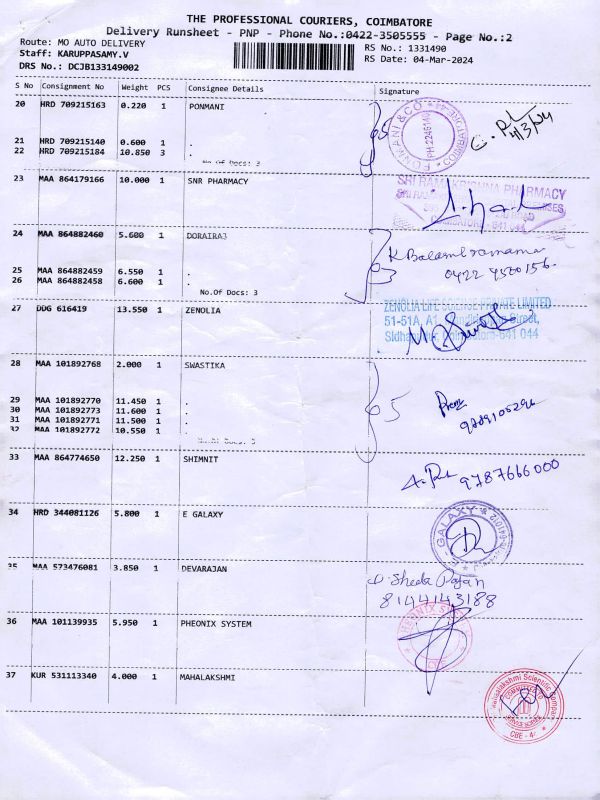 THE PROFESSIONAL COURIERS, COIMBATORE
Delivery Runsheet - PNP - Phone No.:0422-3505555 - Page No.:2
Route: MO AUTO DELIVERY
RS No.: 1331490
Staff: KARUPPASAMY.V
RS Date: 04-Mar-2024
DRS No.: DCJB133149002
S No Consignment No Weight PCS Consignee Details Signature
20 HRD 709215163 0.220 1 PONMANI
4/3/24
21 HRD 709215140 0.600 1 .
22 HRD 709215184 10.850 3 .
No.Of Docs: 3
PONMANI & CO
23 MAA 864179166 10.000 1 SNR PHARMACY
SRI RAMAKRISHNA PHARMACY
24 MAA 864882460 5.600 1 DORAIRAJ
K Balasubramaniam
0422 4500156.
25 MAA 864882459 6.550 1 .
26 MAA 864882458 6.600 1 .
No.Of Docs: 3
27 DDG 616419 13.550 1 ZENOLIA
ZENOLIA LIFE SCIENSE PRIVATE LIMITED
51-51A, A1, Street,
641 044
28 MAA 101892768 2.000 1 SWASTIKA
29 MAA 101892770 11.450 1 .
30 MAA 101892773 11.600 1 .
31 MAA 101892771 11.500 1 .
32 MAA 101892772 10.550 1 .
No.Of Docs: 5
5
33 MAA 864774650 12.250 1 SHIMNIT
9787666000
34 HRD 344081126 5.800 1 E GALAXY
GALAXY
35 MAA 573476081 3.850 1 DEVARAJAN
8144143188
36 MAA 101139935 5.950 1 PHEONIX SYSTEM
PHEONIX SYSTEM
CBE
37 KUR 531113340 4.000 1 MAHALAKSHMI
Mahalakshmi Scientific Company
CBE - 4